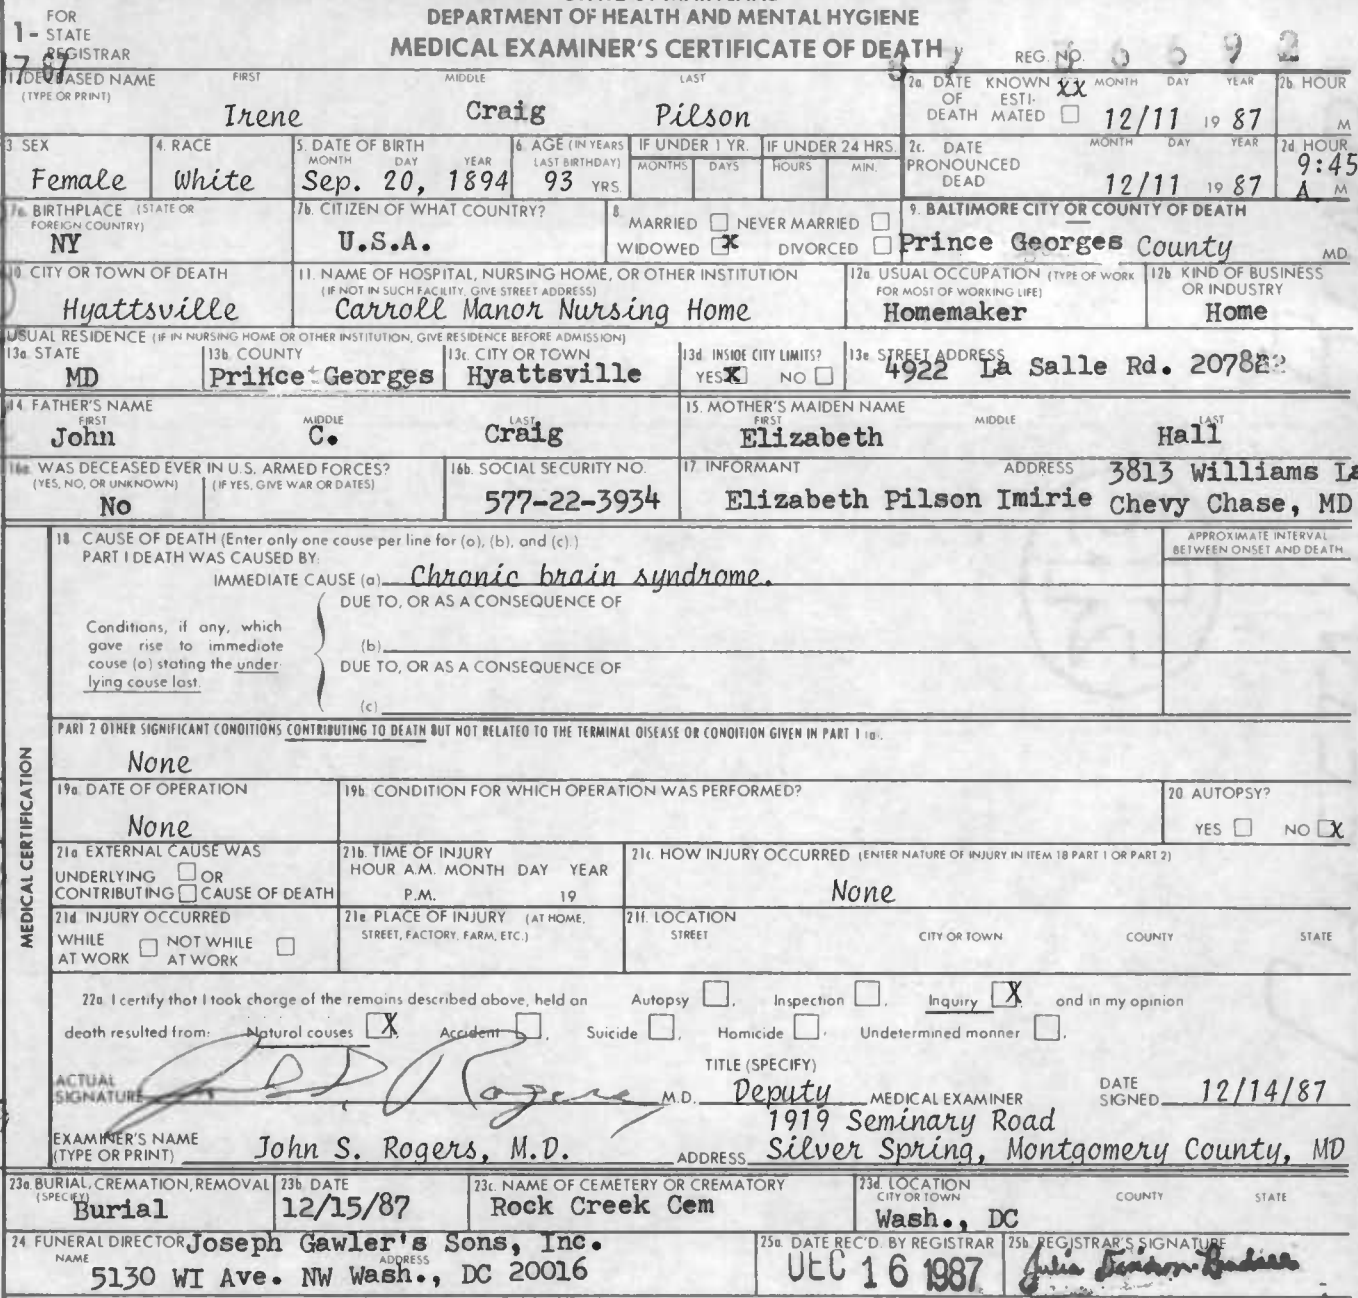 FOR
1- STATE
REGISTRAR
DEPARTMENT OF HEALTH AND MENTAL HYGIENE
MEDICAL EXAMINER'S CERTIFICATE OF DEATH
REG. NO.
1. DECEASED NAME FIRST MIDDLE LAST
(TYPE OR PRINT)
Irene Craig Pilson
2a. DATE KNOWN XX MONTH DAY YEAR
OF ESTI-
DEATH MATED 12/11 19 87
2b. HOUR
M
3 SEX
Female
4. RACE
White
5. DATE OF BIRTH
MONTH DAY YEAR
Sep. 20, 1894
6. AGE (IN YEARS
LAST BIRTHDAY)
93 YRS.
IF UNDER 1 YR.
MONTHS DAYS
IF UNDER 24 HRS.
HOURS MIN.
2c. DATE MONTH DAY YEAR
PRONOUNCED
DEAD 12/11 19 87
2d. HOUR
9:45
A. M
7a. BIRTHPLACE (STATE OR
FOREIGN COUNTRY)
NY
7b. CITIZEN OF WHAT COUNTRY?
U.S.A.
8
MARRIED NEVER MARRIED
WIDOWED X DIVORCED
9. BALTIMORE CITY OR COUNTY OF DEATH
Prince Georges County MD
10. CITY OR TOWN OF DEATH
Hyattsville
11. NAME OF HOSPITAL, NURSING HOME, OR OTHER INSTITUTION
(IF NOT IN SUCH FACILITY, GIVE STREET ADDRESS)
Carroll Manor Nursing Home
12a. USUAL OCCUPATION (TYPE OF WORK
FOR MOST OF WORKING LIFE)
Homemaker
12b. KIND OF BUSINESS
OR INDUSTRY
Home
USUAL RESIDENCE (IF IN NURSING HOME OR OTHER INSTITUTION, GIVE RESIDENCE BEFORE ADMISSION)
13a. STATE
MD
13b. COUNTY
Prince Georges
13c. CITY OR TOWN
Hyattsville
13d. INSIDE CITY LIMITS?
YES X NO
13e. STREET ADDRESS
4922 La Salle Rd.
14. FATHER'S NAME
FIRST MIDDLE LAST
John C. Craig
15. MOTHER'S MAIDEN NAME
FIRST MIDDLE LAST
Elizabeth Hall
16a. WAS DECEASED EVER IN U.S. ARMED FORCES?
(YES, NO, OR UNKNOWN) (IF YES, GIVE WAR OR DATES)
No
16b. SOCIAL SECURITY NO.
577-22-3934
17. INFORMANT ADDRESS
Elizabeth Pilson Imirie
3813 Williams La
Chevy Chase, MD
18 CAUSE OF DEATH (Enter only one cause per line for (a), (b), and (c).)
PART I DEATH WAS CAUSED BY:
IMMEDIATE CAUSE (a) Chronic brain syndrome.
APPROXIMATE INTERVAL
BETWEEN ONSET AND DEATH
DUE TO, OR AS A CONSEQUENCE OF
Conditions, if any, which
gave rise to immediate
cause (a) stating the under-
lying cause last.
(b)
DUE TO, OR AS A CONSEQUENCE OF
(c)
PART 2 OTHER SIGNIFICANT CONDITIONS CONTRIBUTING TO DEATH BUT NOT RELATED TO THE TERMINAL DISEASE OR CONDITION GIVEN IN PART 1 (a).
None
MEDICAL CERTIFICATION
19a. DATE OF OPERATION
None
19b. CONDITION FOR WHICH OPERATION WAS PERFORMED?
20. AUTOPSY?
YES NO X
21a. EXTERNAL CAUSE WAS
UNDERLYING OR
CONTRIBUTING CAUSE OF DEATH
21b. TIME OF INJURY
HOUR A.M. MONTH DAY YEAR
P.M. 19
21c. HOW INJURY OCCURRED (ENTER NATURE OF INJURY IN ITEM 18 PART 1 OR PART 2)
None
21d. INJURY OCCURRED
WHILE NOT WHILE
AT WORK AT WORK
21e. PLACE OF INJURY (AT HOME,
STREET, FACTORY, FARM, ETC.)
21f. LOCATION
STREET CITY OR TOWN COUNTY STATE
22a. I certify that I took charge of the remains described above, held an Autopsy, Inspection, Inquiry X and in my opinion
death resulted from: Natural causes X Accident, Suicide, Homicide, Undetermined manner.
ACTUAL
SIGNATURE Rogers M.D.
TITLE (SPECIFY)
Deputy MEDICAL EXAMINER
DATE
SIGNED 12/14/87
EXAMINER'S NAME
(TYPE OR PRINT) John S. Rogers, M.D.
1919 Seminary Road
ADDRESS Silver Spring, Montgomery County, MD
23a. BURIAL, CREMATION, REMOVAL
(SPECIFY)
Burial
23b. DATE
12/15/87
23c. NAME OF CEMETERY OR CREMATORY
Rock Creek Cem
23d. LOCATION
CITY OR TOWN COUNTY STATE
Wash., DC
24. FUNERAL DIRECTOR Joseph Gawler's Sons, Inc.
NAME ADDRESS
5130 WI Ave. NW Wash., DC 20016
25a. DATE REC'D. BY REGISTRAR
DEC 16 1987
25b. REGISTRAR'S SIGNATURE
Julia